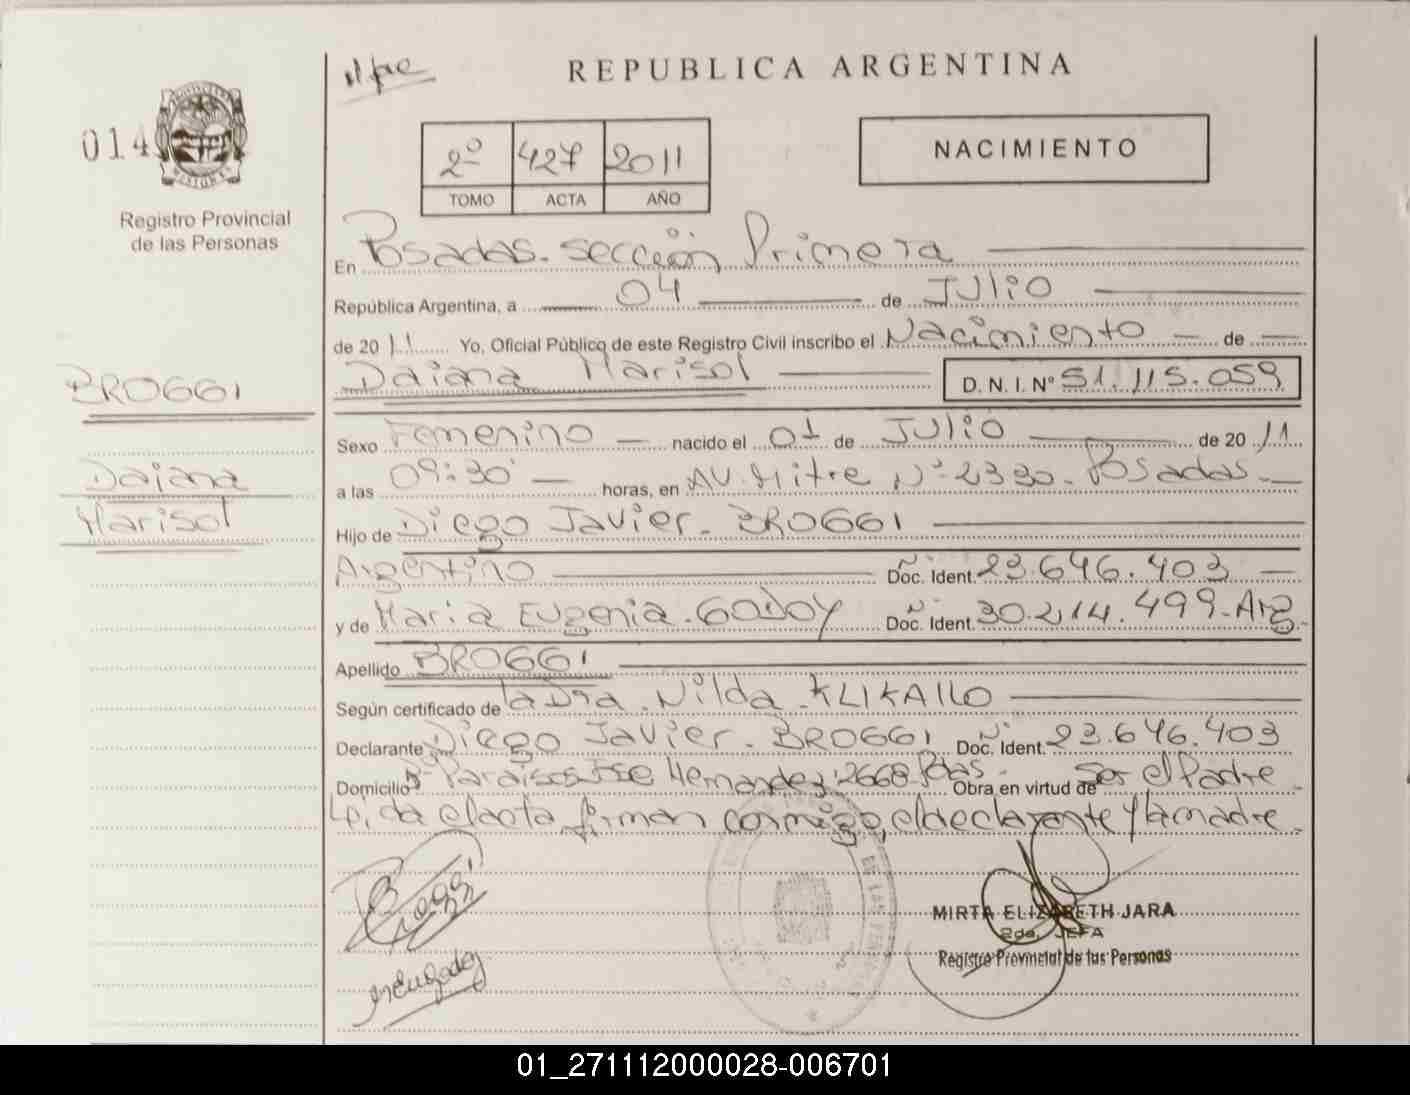 REPUBLICA ARGENTINA
014
2º 427 2011
TOMO ACTA AÑO
NACIMIENTO
Registro Provincial
de las Personas
En Posadas. sección Primera
República Argentina, a 04 de Julio
de 2011 Yo, Oficial Público de este Registro Civil inscribo el Nacimiento de
BROGGI
Daiana Marisol D. N. I. Nº 51.115.059
Sexo Femenino nacido el 01 de Julio de 2011
Daiana
Marisol
a las 09:30 horas, en AV. Mitre Nº 2330. Posadas
Hijo de Diego Javier. BROGGI
Argentino Doc. Ident. 23.646.403
y de Maria Eugenia. GODOY Doc. Ident. 30.214.499-Arg
Apellido BROGGI
Según certificado de la Dra. Nilda.
Declarante Diego Javier. BROGGI Doc. Ident. 23.646.403
Domicilio Bº Paraiso José Hernandez 2668 Pdas. Obra en virtud de Ser el Padre
Leida el acta, firman conmigo, el declarante y la madre.
MIRTA ELIZABETH JARA
2da. JEFA
Registro Provincial de las Personas
01_271112000028-006701